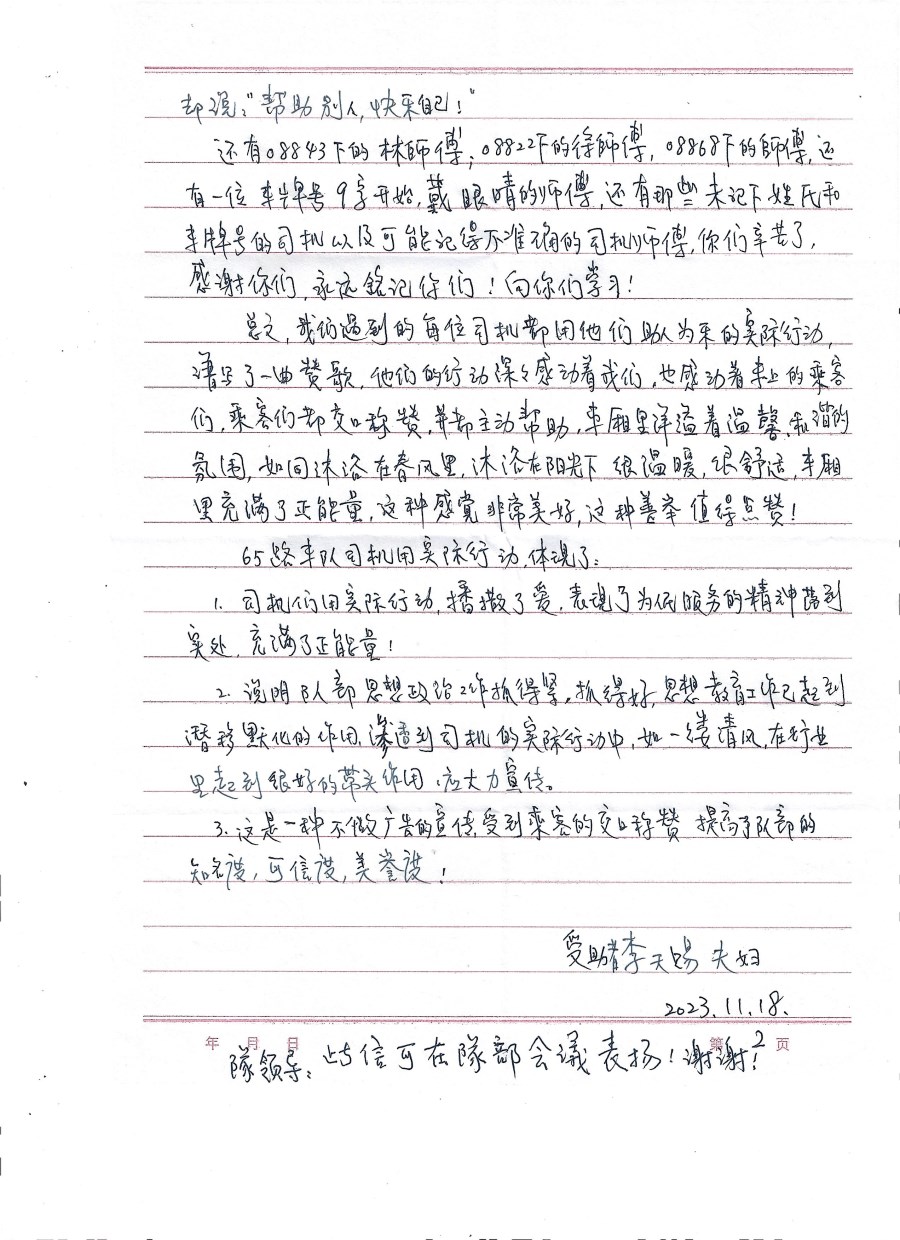 却说:"帮助别人,快乐自己!"
还有08843下的林师傅;08822下的徐師傅,08868下的師傅,还
有一位車牌号9字开始,戴眼晴的师傅,还有那些未记下姓氏和
車牌号的司机以及可能记得不准确的司机师傅,你们辛苦了,
感谢你们,永远铭记你们!向你们学习!
总之,我们遇到的每位司机都用他们助人为乐的实际行动,
谱写了一曲赞歌,他们的行动深々感动着我们,也感动着車上的乘客
们,乘客们都交口称赞,并都主动帮助,車厢里洋溢着温馨、和谐的
氛围,如同沐浴在春风里,沐浴在阳光下很温暖,很舒适,車厢
里充满了正能量,这种感觉非常美好,这种善举值得点赞!
65路车队司机用实际行动,体现了:
1. 司机们用实际行动,播撒了爱,表现了为民服务的精神落到
实处,充满了正能量!
2. 说明队部思想政治工作抓得紧,抓得好,思想教育工作已起到
潜移默化的作用,渗透到司机的实际行动中,如一缕清风,在行业
里起到很好的带头作用,应大力宣传。
3. 这是一种不做广告的宣传,受到乘客的交口称赞 提高了队部的
知名度,可信度,美誉度!
受助者李天赐夫妇
2023.11.18.
年 月 日 第 2 页
隊领导:此信可在隊部会議表扬!谢谢!